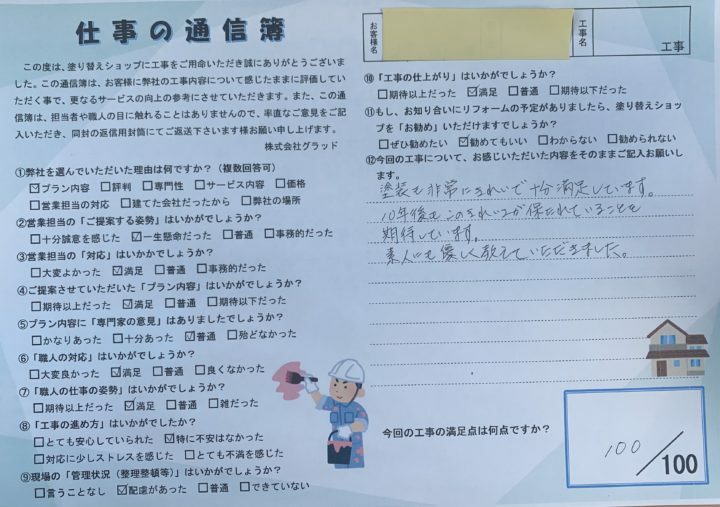 仕事の通信簿
この度は、塗り替えショップに工事をご用命いただき誠にありがとうございま
した。この通信簿は、お客様に弊社の工事内容について感じたままに評価してい
ただく事で、更なるサービスの向上の参考にさせていただきます。また、この通
信簿は、担当者や職人の目に触れることはありませんので、率直なご意見をご記
入いただき、同封の返信用封筒にてご返送下さいます様お願い申し上げます。
株式会社グラッド
①弊社を選んでいただいた理由は何ですか？（複数回答可）
☑プラン内容 □評判 □専門性 □サービス内容 □価格
□営業担当の対応 □建てた会社だったから □弊社の場所
②営業担当の「ご提案する姿勢」はいかがでしょうか？
□十分誠意を感じた ☑一生懸命だった □普通 □事務的だった
③営業担当の「対応」はいかかでしょうか？
□大変よかった ☑満足 □普通 □事務的だった
④ご提案させていただいた「プラン内容」はいかがでしょうか？
□期待以上だった ☑満足 □普通 □期待以下だった
⑤プラン内容に「専門家の意見」はありましたでしょうか？
□かなりあった □十分あった ☑普通 □殆どなかった
⑥「職人の対応」はいかがでしょうか？
□大変良かった ☑満足 □普通 □良くなかった
⑦「職人の仕事の姿勢」はいかがでしょうか？
□期待以上だった ☑満足 □普通 □雑だった
⑧「工事の進め方」はいかがでしたか？
□とても安心していられた ☑特に不安はなかった
□対応に少しストレスを感じた □とても不満を感じた
⑨現場の「管理状況（整理整頓等）」はいかがでしょうか？
□言うことなし ☑配慮があった □普通 □できていない
お客様名
工事名
工事
⑩「工事の仕上がり」はいかがでしょうか？
□期待以上だった ☑満足 □普通 □期待以下だった
⑪もし、お知り合いにリフォームの予定がありましたら、塗り替えショッ
プを「お勧め」いただけますでしょうか？
□ぜひ勧めたい ☑勧めてもいい □わからない □勧められない
⑫今回の工事について、お感じいただいた内容をそのままご記入お願いし
ます。
塗装も非常にきれいで十分満足しています。
10年後もこのきれいさが保たれていることを
期待しています。
素人にも優しく教えていただきました。
今回の工事の満足点は何点ですか？
100/100